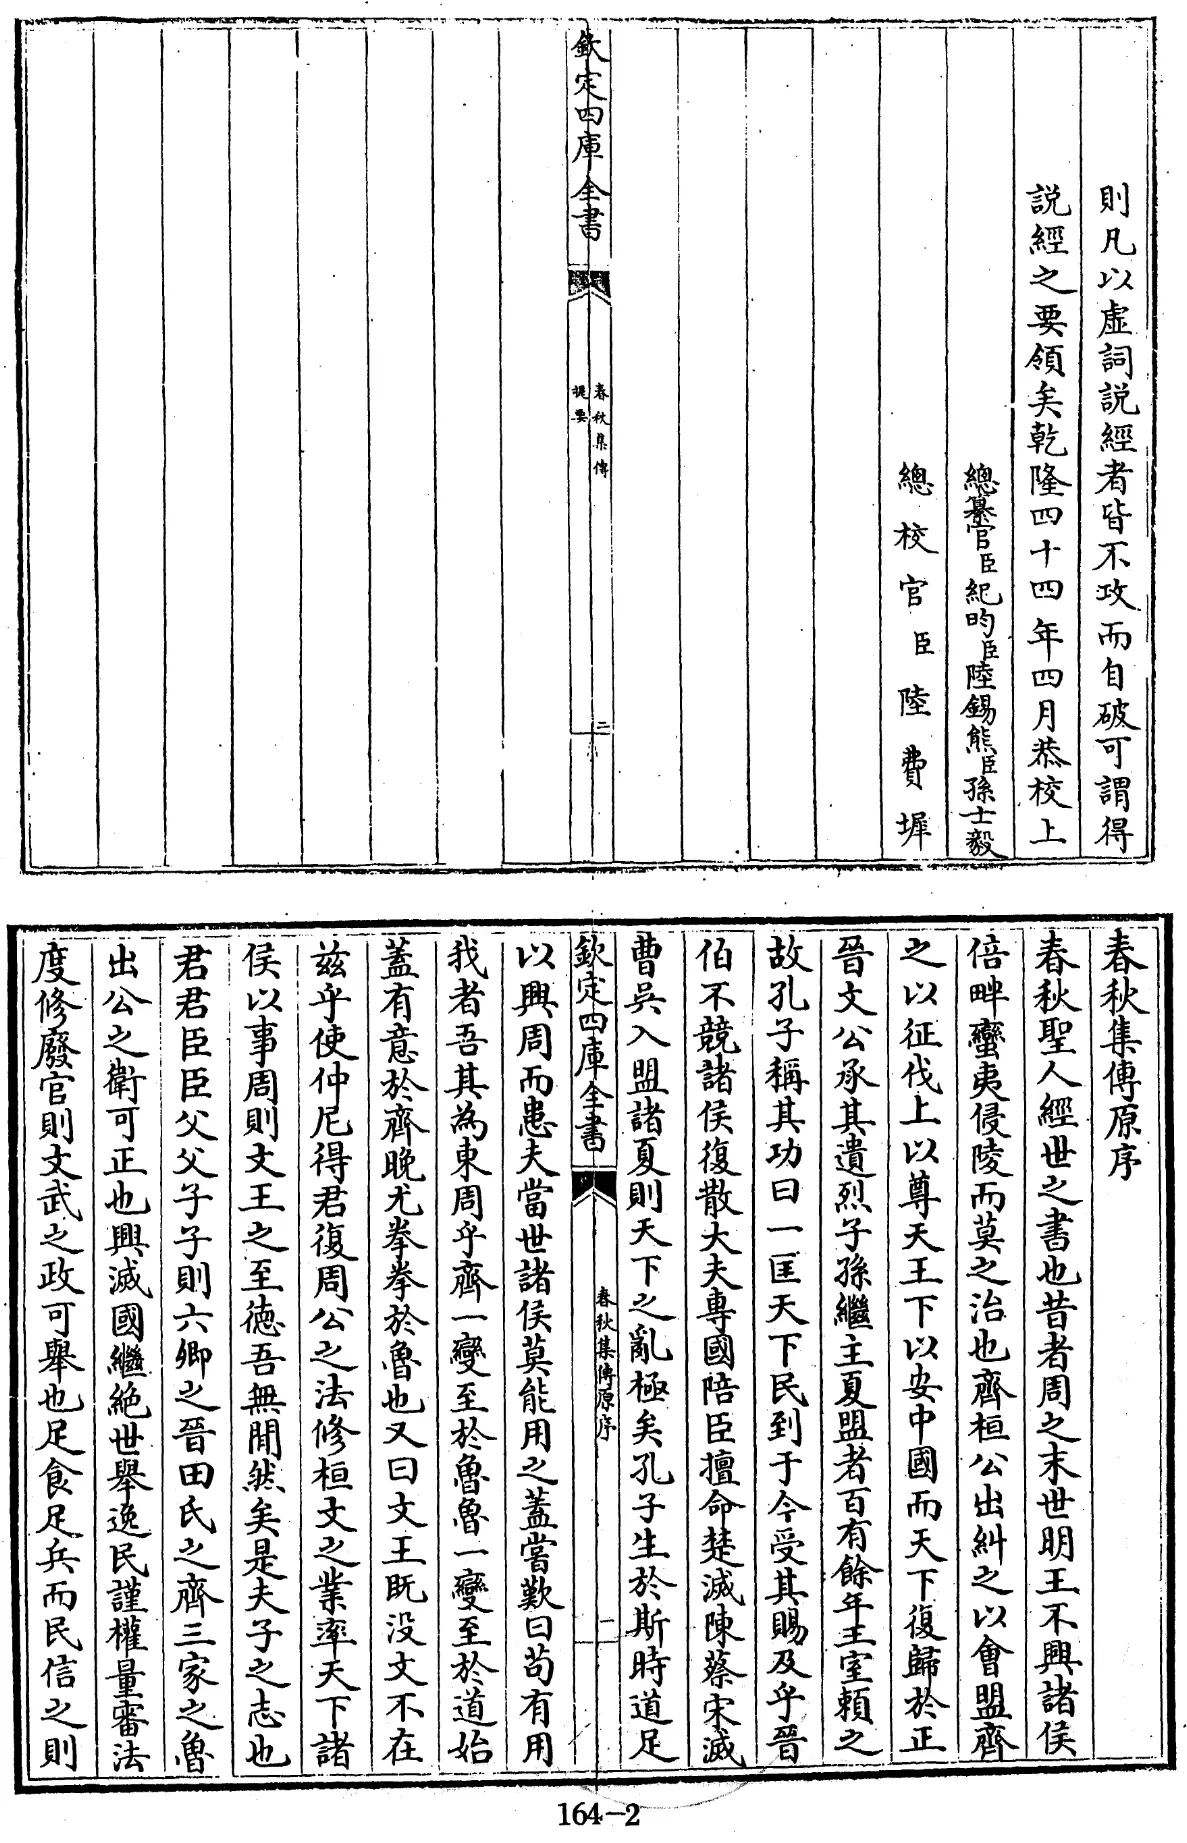 則凡以虛詞説經者皆不攻而自破可謂得
説經之要領矣乾隆四十四年四月恭校上
總纂官臣紀昀臣陸錫熊臣孫士毅
總校官臣陸費墀
欽定四庫全書
春秋集傳
提要
二
春秋集傳原序
春秋聖人經世之書也昔者周之末世明王不興諸侯
倍畔蠻夷侵陵而莫之治也齊桓公出糾之以會盟齊
之以征伐上以尊天王下以安中國而天下復歸於正
晉文公承其遺烈子孫繼主夏盟者百有餘年王室賴之
故孔子稱其功曰一匡天下民到于今受其賜及乎晉
伯不競諸侯復散大夫專國陪臣擅命楚滅陳蔡宋滅
曹吳入盟諸夏則天下之亂極矣孔子生於斯時道足
欽定四庫全書
春秋集傳原序
一
以興周而患夫當世諸侯莫能用之蓋嘗歎曰苟有用
我者吾其為東周乎齊一變至於魯魯一變至於道始
蓋有意於齊晚尤拳拳於魯也又曰文王既没文不在
兹乎使仲尼得君復周公之法修桓文之業率天下諸
侯以事周則文王之至德吾無間然矣是夫子之志也
君君臣臣父父子子則六卿之晉田氏之齊三家之魯
出公之衛可正也興滅國繼絶世舉逸民謹權量審法
度修廢官則文武之政可舉也足食足兵而民信之則
164-2